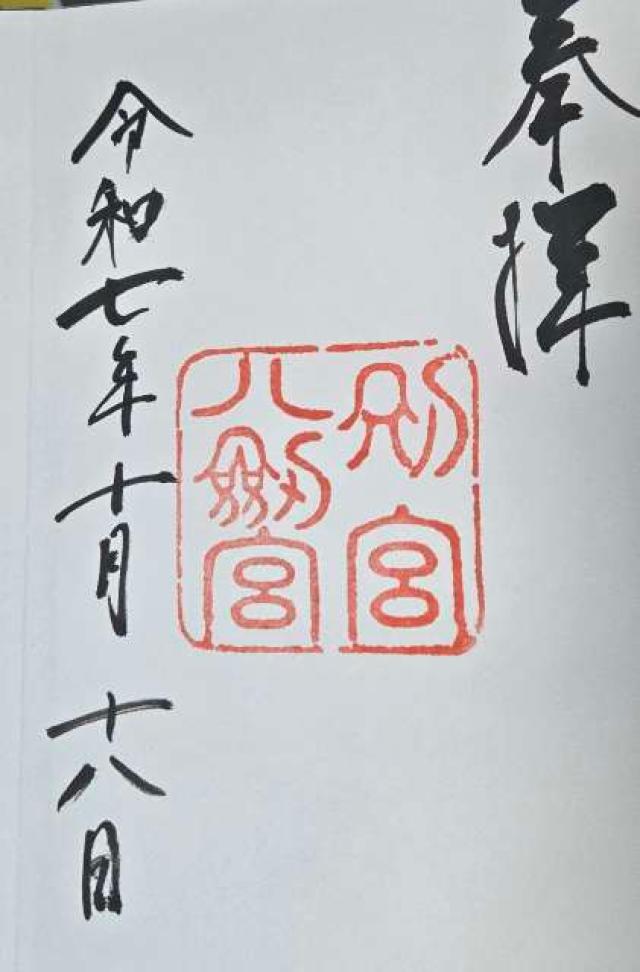 奉拝
別宮
八剱宮
令和七年十月十八日